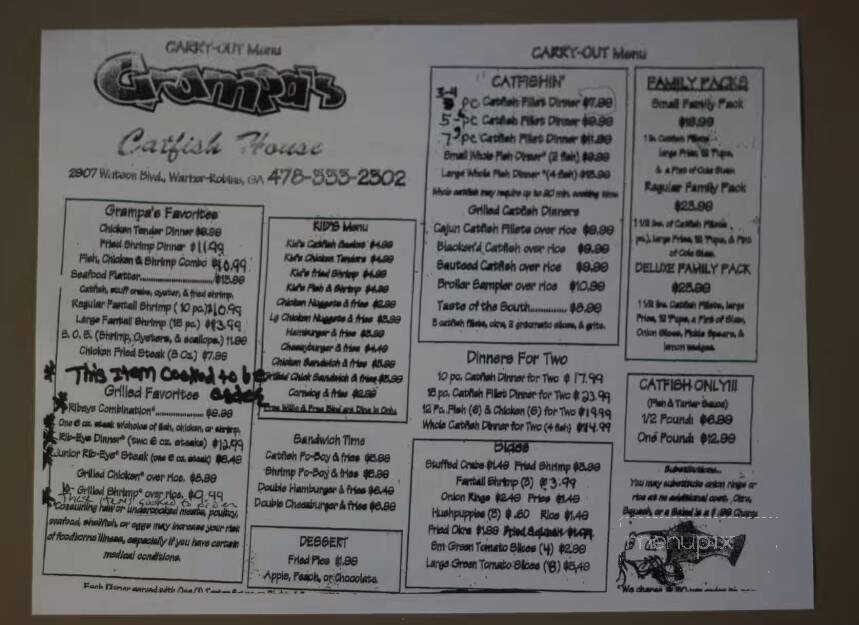 CARRY-OUT Menu
Grampa's
Catfish House
2907 Watson Blvd., Warner-Robins, GA 478-333-2302
Grampa's Favorites
Chicken Tender Dinner $8.99
Fried Shrimp Dinner $11.99
Fish, Chicken & Shrimp Combo $10.99
Seafood Platter.................... $13.99
Catfish, stuff crabs, oyster, & fried shrimp.
Regular Fantail Shrimp (10 pc.) $10.99
Large Fantail Shrimp (15 pc.) $13.99
S. O. S. (Shrimp, Oysters, & scallops.) 11.99
Chicken Fried Steak (8 Oz.) $7.99
This Item Cooked to be
Grilled Favorites
Ribeye Combination*.................... $9.99
One 6 oz. steak w/choice of fish, chicken, or shrimp.
Rib-Eye Dinner* (two 6 oz. steaks) $12.99
Junior Rib-Eye* Steak (one 6 oz. steak) $8.49
Grilled Chicken* over rice. $8.99
Grilled Shrimp* over rice. $9.99
These items cooked to order
*Consuming raw or undercooked meats, poultry,
seafood, shellfish, or eggs may increase your risk
of foodborne illness, especially if you have certain
medical conditions.
KID'S Menu
Kid's Catfish Basket $4.99
Kid's Chicken Tenders $4.99
Kid's fried Shrimp $4.99
Kid's Fish & Shrimp $4.99
Chicken Nuggets & fries $2.99
Lg Chicken Nuggets & fries $3.99
Hamburger & fries $3.99
Cheeseburger & fries $4.49
Chicken Sandwich & fries $3.99
Grilled Chick Sandwich & fries $3.99
Corndog & fries $2.99
Sandwich Time
Catfish Po-Boy & fries $6.99
Shrimp Po-Boy & fries $6.99
Double Hamburger & fries $6.49
Double Cheeseburger & fries $6.99
DESSERT
Fried Pies $1.99
Apple, Peach, or Chocolate.
CARRY-OUT Menu
CATFISHIN'
3-4 pc Catfish Fillet Dinner $7.99
5-6 pc Catfish Fillet Dinner $9.99
pc Catfish Fillet Dinner $11.99
Small Whole Fish Dinner* (2 fish) $9.99
Large Whole Fish Dinner *(4 fish) $13.99
Whole catfish may require up to 20 min. cooking time
Grilled Catfish Dinners
Cajun Catfish Fillets over rice $9.99
Blacken'd Catfish over rice $9.99
Sauteed Catfish over rice $9.99
Broiler Sampler over rice $10.99
Taste of the South............. $8.99
3 catfish fillets, okra, 2 g'tomato slices, & grits.
Dinners For Two
10 pc. Catfish Dinner for Two $17.99
15 pc. Catfish Fillet Dinner for Two $23.99
12 Pc. Fish (6) & Chicken (6) for Two $19.99
Whole Catfish Dinner for Two (4 fish) $14.99
Sides
Stuffed Crabs $1.49 Fried Shrimp $3.99
Fantail Shrimp (3) $3.99
Onion Rings $2.49 Fries $1.49
Hushpuppies (3) $.60 Rice $1.49
Fried Okra $1.99
Sm Green Tomato Slices (4) $2.99
Large Green Tomato Slices (8) $5.49
FAMILY PACKS
Small Family Pack
$18.99
Regular Family Pack
$23.99
DELUXE FAMILY PACK
1 1/2 lbs. Catfish Fillets, large
Fries, 12 'Pups, a Pint of Slaw,
Onion Rings, Pickle Spears, &
lemon wedges.
CATFISH ONLY!!!
(Fish & Tarter Sauce)
1/2 Pound: $6.99
One Pound: $12.99
Substitutions...
You may substitute onion rings or
rice at no additional cost. Okra,
Squash, or a Salad is a $.99 Charge
menupix